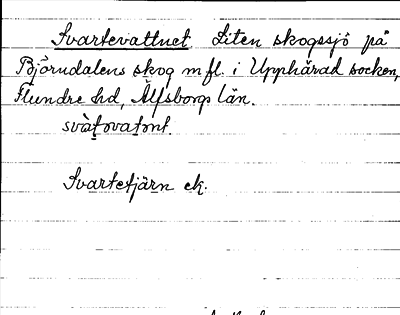 Svartevattnet Liten skogssjö på
Björndalens skog m fl. i Upphärad socken,
Flundre hd, Älfsborgs län.
svàtəvatənt.
Svartetjärn ek.